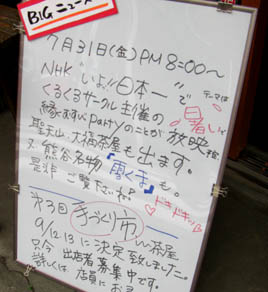 BIG ニュース
7月31日(金)PM 8:00〜
NHK "いよっ日本一"で
テーマは
くるくるサークル主催の
暑い
縁むすびPartyのことが放映
聖天山、大福茶屋も出ます。
又熊谷名物『雪くま』も。
是非ご覧下さいね。
ドキドキッ
第3回 手づくり市 in 茶屋
9/12.13に決定致しました
只今出店者募集中です。
詳しくは店員にお